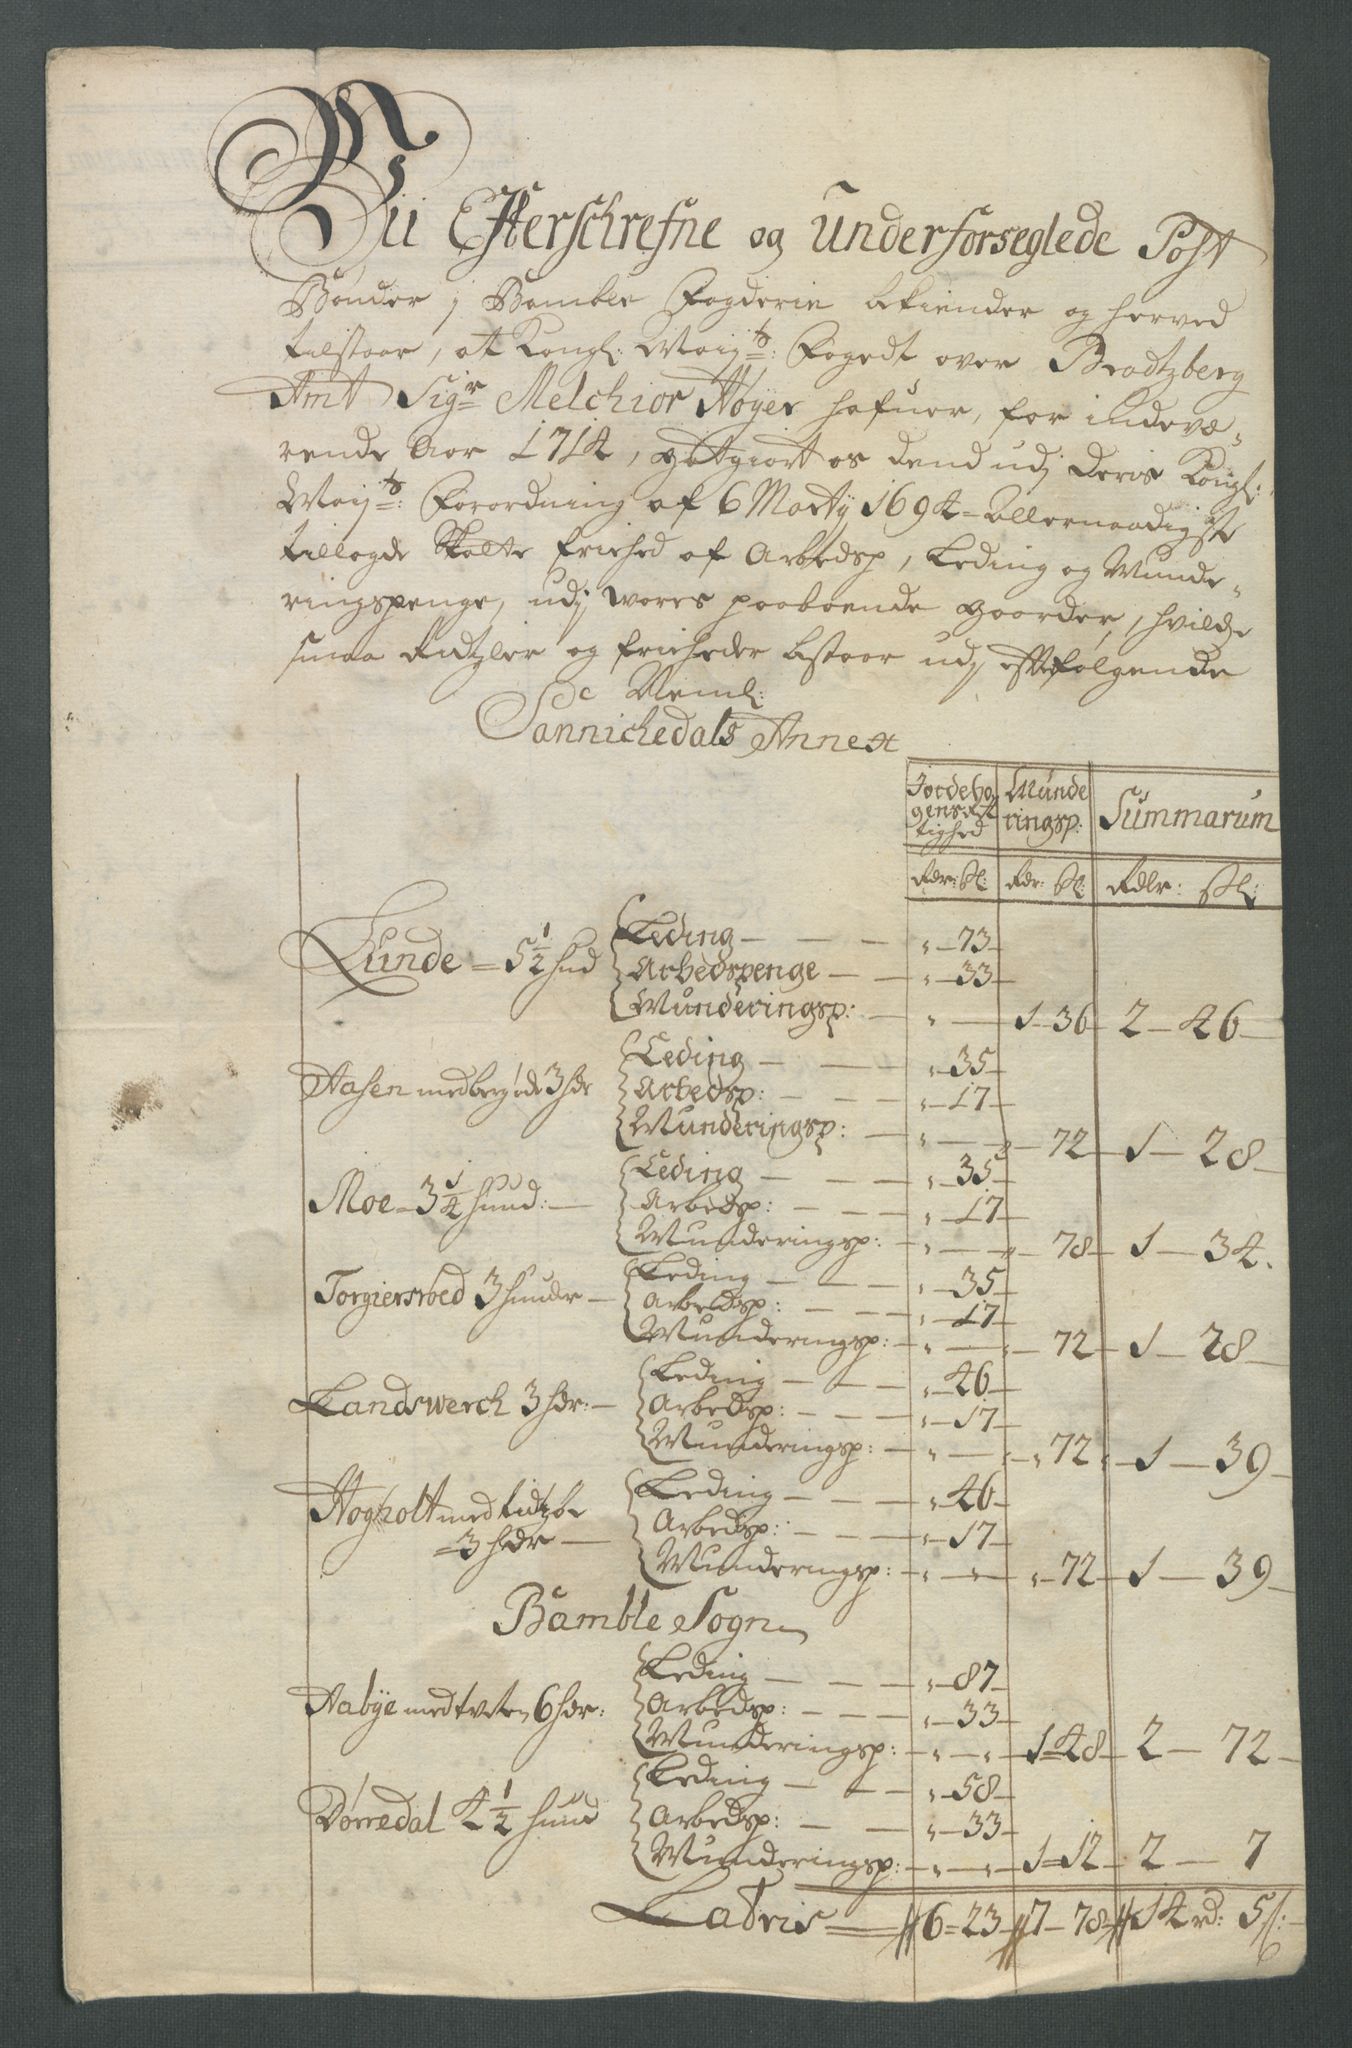 Vii Efterschrefne og Underforseglede Post
Bønder j Bamble Fogderie bekiender og herved
tilstaar, at Kongl: Mayts: Fogedt over Bradtzberg
Amt Sigr Melchior Høyer hafuer, for indevæ-
rende Aar 1714, gotgiort os dend udj deris Kongl:
Mayts: Forordning af 6 Marty 1694 Allernaadigste
tillagde Skatte friehed af Arbedsp, Leding og Munde-
ringspenge, udj wores paaboende gaarder, hvilche
smaa Rettzler og frieheder bestaar udj efterfølgende
Neml:
Sannichedals Annex
Jordebo-
gensRet-
tighed Munde
ringsp: Summarum
Rdr: sl: Rdr: sl: Rdlr: sl:
Lunde = 5 1/2 hud Leding — — — „ — 73 —
Arbedspenge — — „ — 33 —
Munderingsp: — „ — 1 — 36 — 2 — 46 —
Aasen med bergøde 3 hdr Leding — — — „ — 35 —
Arbedsp: — — — „ — 17 —
Munderingsp: — „ — „ — 72 — 1 — 28 —
Moe — 3 1/4 hund: — Leding — — — „ — 35 —
Arbedsp: — — — „ — 17 —
Munderingsp: — „ — „ — 78 — 1 — 34.
Torgiersroed 3 hundr — Leding — — — „ — 35 —
Arbedsp: — — — „ — 17 —
Munderingsp: — „ — „ — 72 — 1 — 28 —
Landswerch 3 hdr: — Leding — — — „ — 46 —
Arbedsp: — — — „ — 17 —
Munderingsp: — „ — „ — 72 — „ 1 — 39 —
Hogholt med
= 3 hdr — Leding — — — „ — 46 —
Arbedsp: — — — „ — 17 —
Munderingsp: — „ — „ — „ — 72 — 1 — 39 —
Bamble Sogn
Aabye med tveten 6 hdr: Leding — — — „ — 87 —
Arbedsp: — — — „ — 33 —
Munderingsp: — „ — „ — 1 = 48 — 2 — 72 —
Dørredal 4 1/2 hund Leding — — — „ — 58 —
Arbedsp: — — „ — 33 —
Munderingsp: — „ — „ — 1 = 12 — 2 — 7
Latris — 6 = 23 7 — 78 14 rd: 5 s: